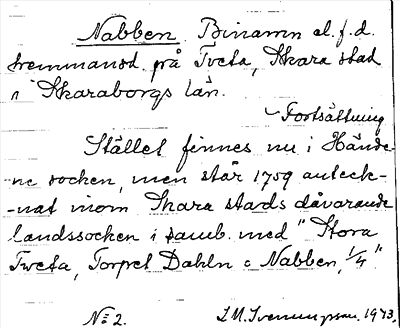 Nabben. Binamn el. f.d.
hemmansd. på Tveta, Skara stad
i Skaraborgs län.
Fortsättning
Stället finnes nu i Hände-
ne socken, men står 1759 anteck-
-nat inom Skara stads dåvarande
landssocken i samb. med "Stora
Tveta, Torpet Dahln o Nabben, 1/4".
No 2. 1943.